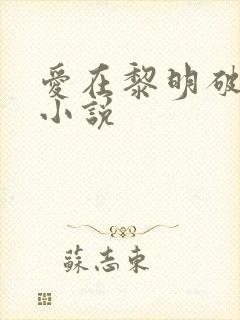 愛在黎明破
小説
蘇志東